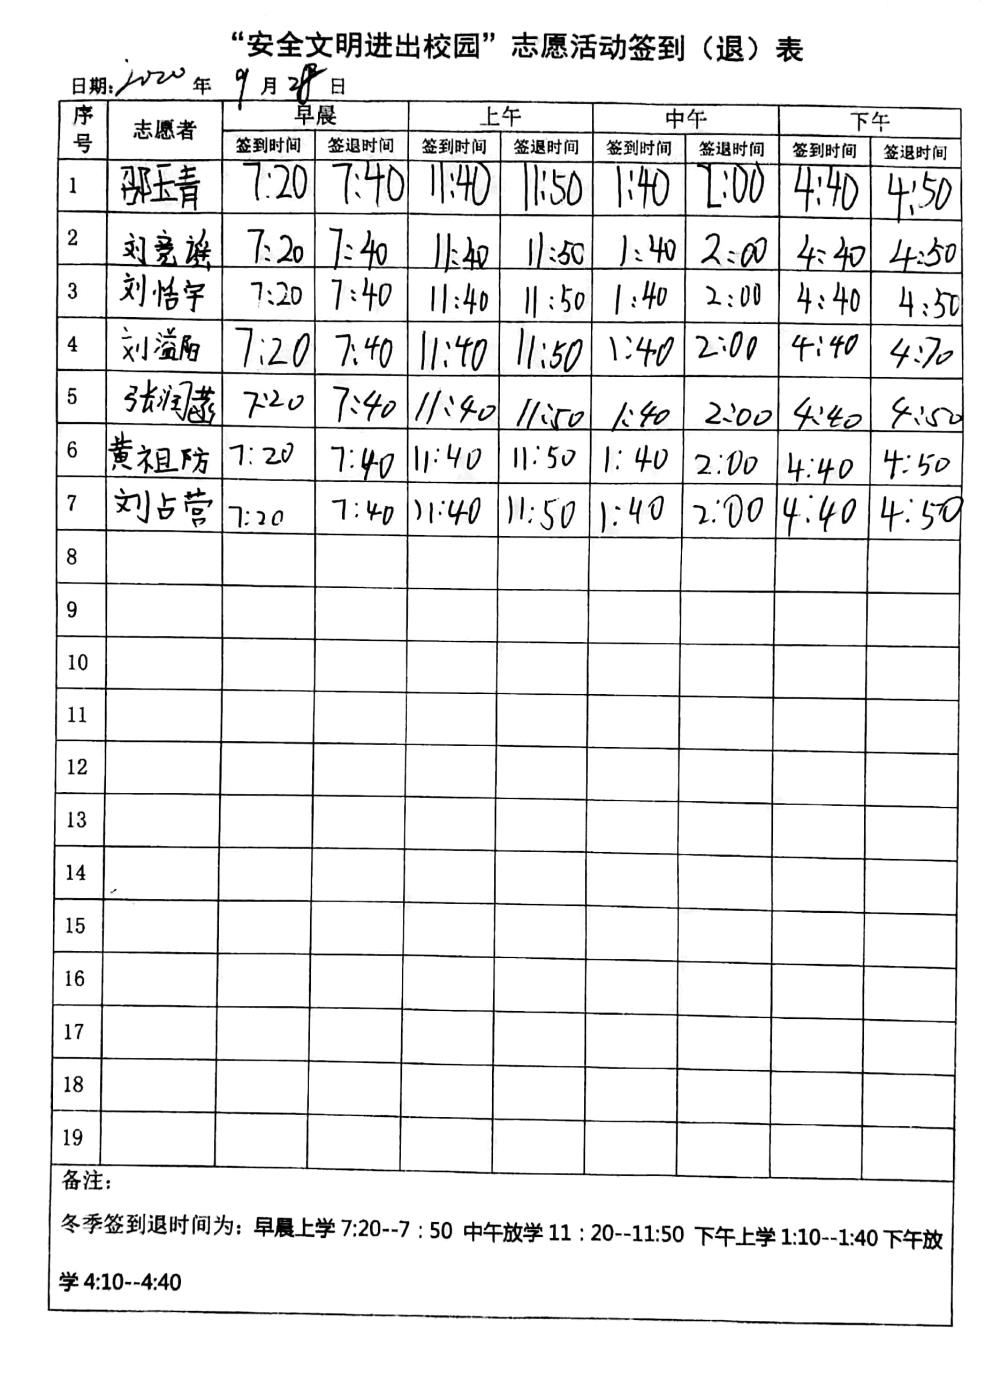 “安全文明进出校园”志愿活动签到（退）表
日期: 2020 年 9 月 28 日
序号 志愿者 早晨 上午 中午 下午
签到时间 签退时间 签到时间 签退时间 签到时间 签退时间 签到时间 签退时间
1 邵玉青 7:20 7:40 11:40 11:50 1:40 2:00 4:40 4:50
2 刘竞 7:20 7:40 11:40 11:50 1:40 2:00 4:40 4:50
3 刘恬宇 7:20 7:40 11:40 11:50 1:40 2:00 4:40 4:50
4 刘溢阳 7:20 7:40 11:40 11:50 1:40 2:00 4:40 4:70
5 张润 7:20 7:40 11:40 11:50 1:40 2:00 4:40 4:50
6 黄祖防 7:20 7:40 11:40 11:50 1:40 2:00 4:40 4:50
7 刘占营 7:20 7:40 11:40 11:50 1:40 2:00 4:40 4:50
8
9
10
11
12
13
14
15
16
17
18
19
备注:
冬季签到退时间为: 早晨上学 7:20--7：50 中午放学 11：20--11:50 下午上学 1:10--1:40 下午放
学 4:10--4:40